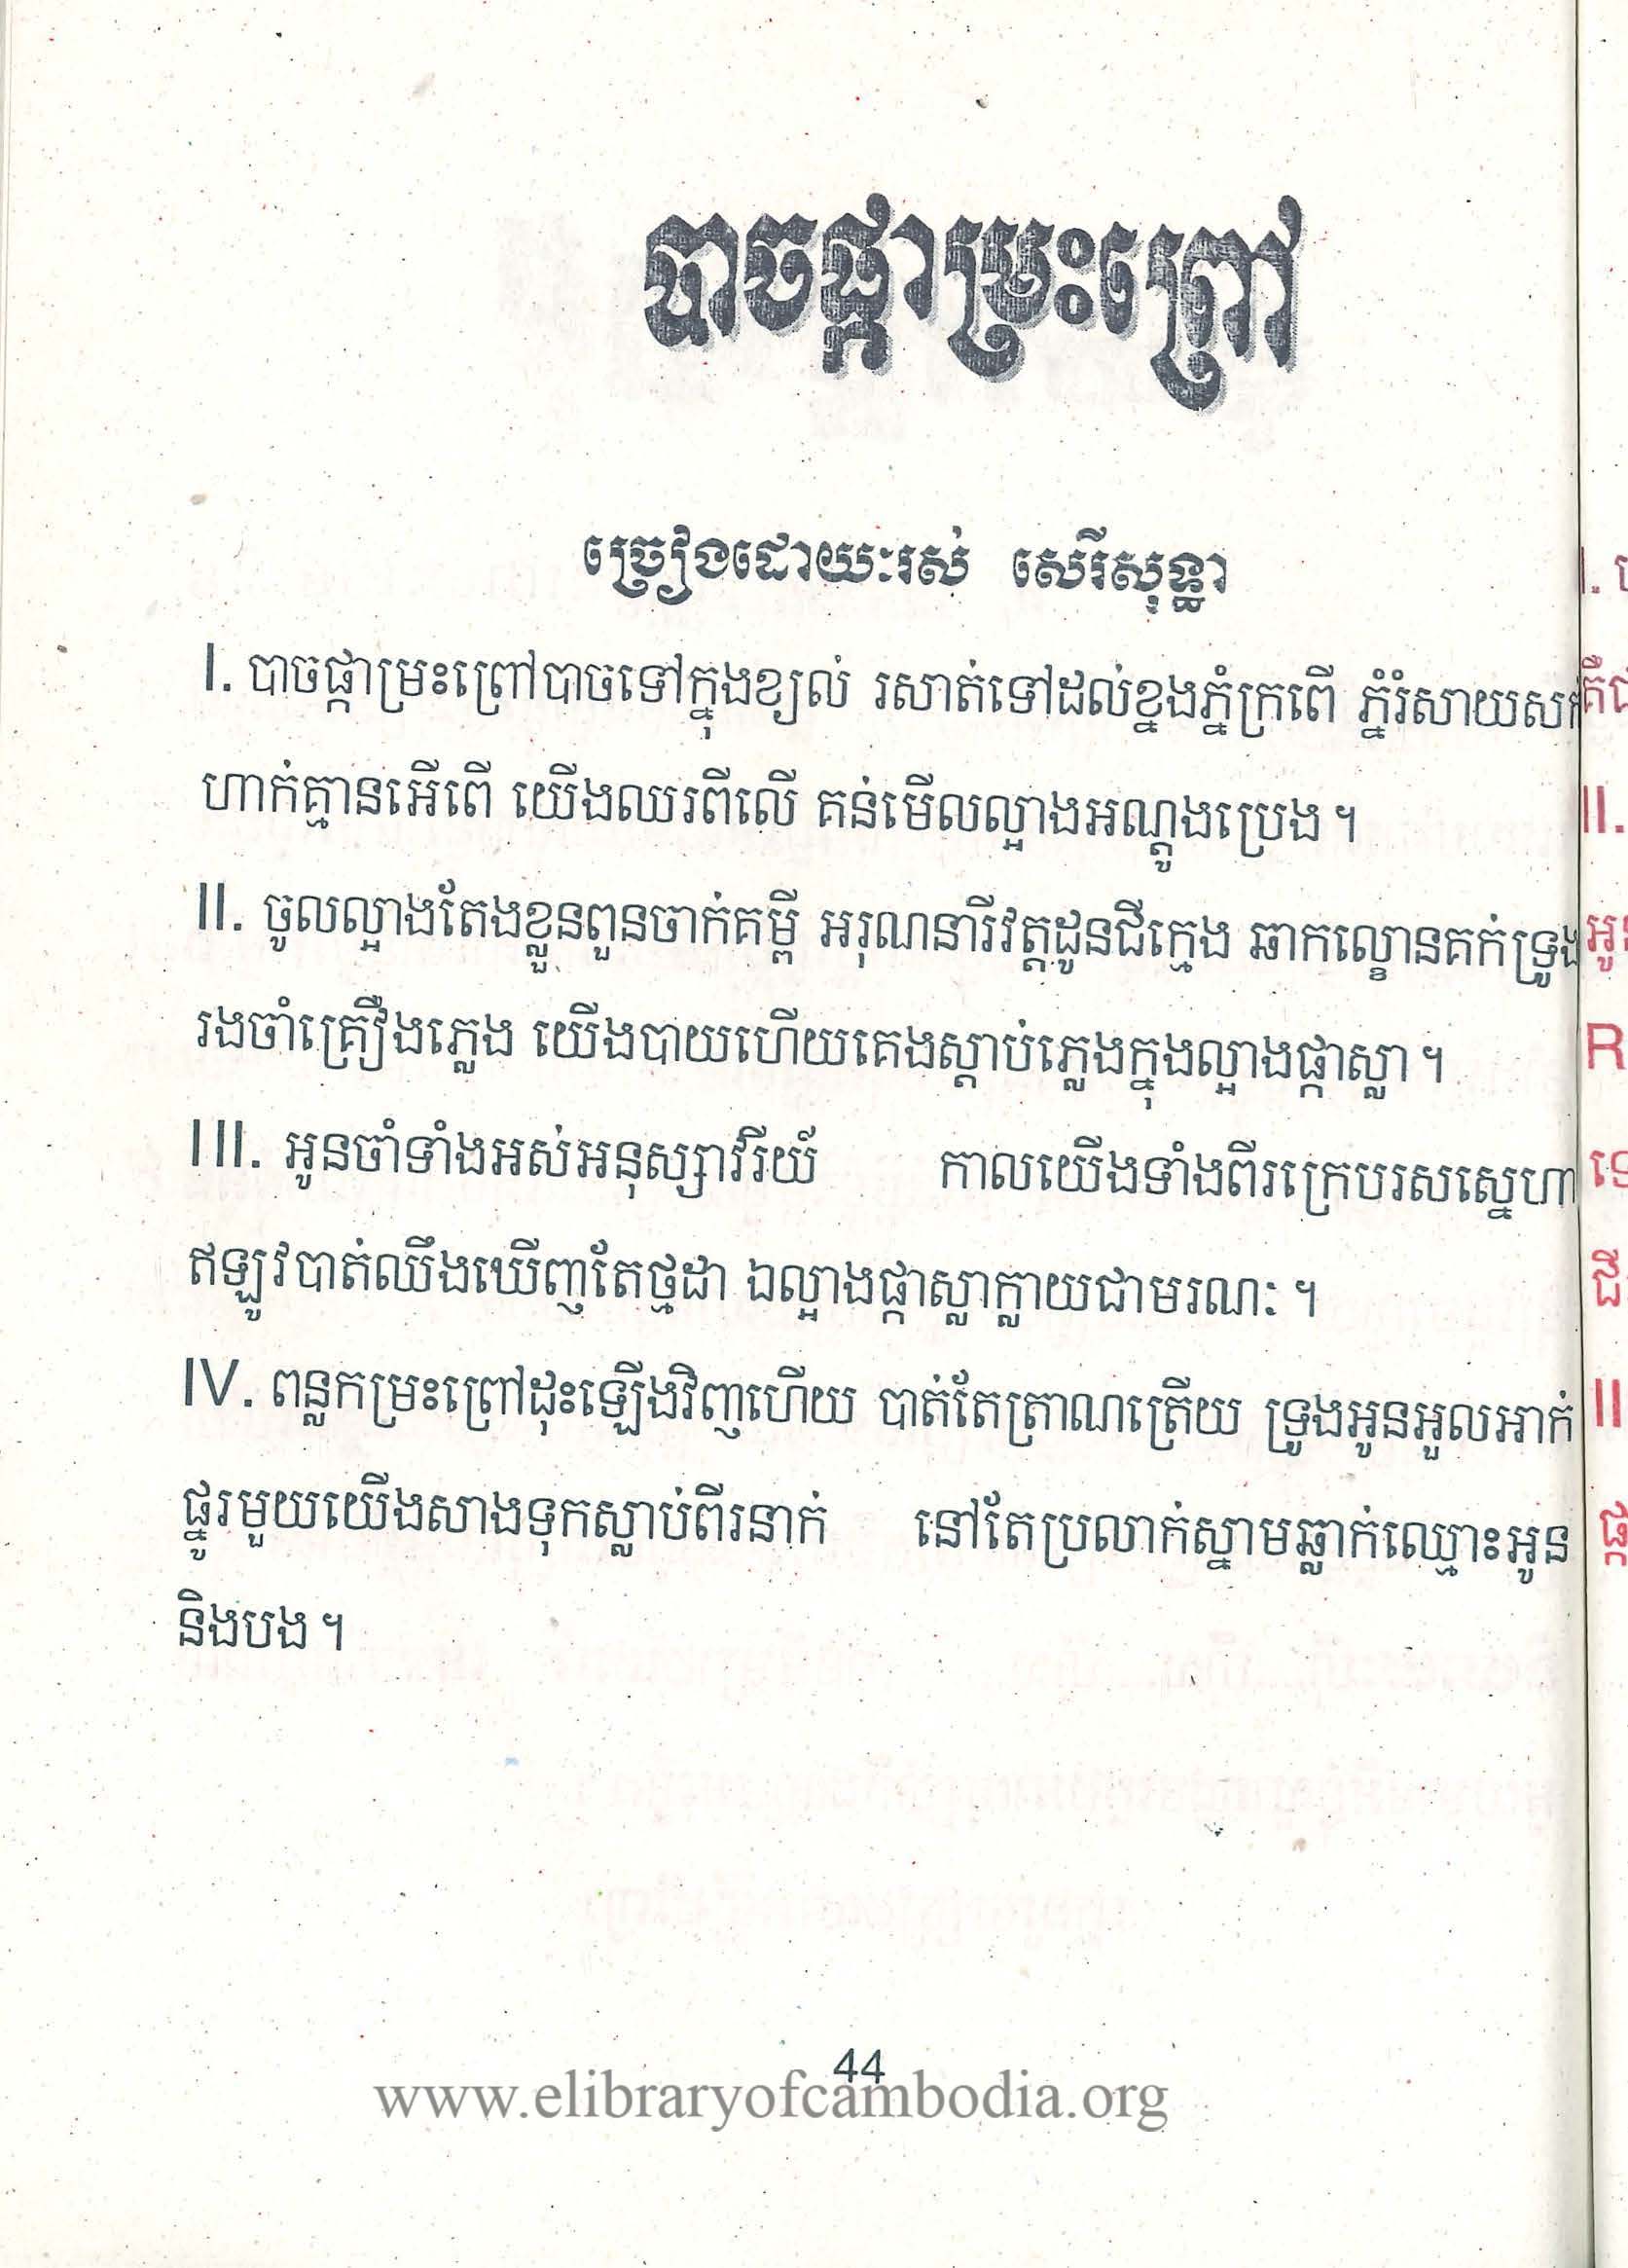 បាចផ្កាម្រះព្រៅ
ច្រៀងដោយៈរស់ សេរីសុទ្ធា
I. បាចផ្កាម្រះព្រៅបាចទៅក្នុងខ្យល់ រសាត់ទៅដល់ខ្នងភ្នំក្រពើ ភ្នំរំសាយសក់
ហាក់គ្មានអើពើ យើងឈរពីលើ គន់មើលល្អាងអណ្ដូងប្រេង។
II. ចូលល្អាងតែងខ្លួនពួនចាក់គម្ពី អរុណនារីវត្តដូនជីក្មេង ឆាកល្ខោនគក់ទ្រូង
រងចាំគ្រឿងភ្លេង យើងបាយហើយគេងស្ដាប់ភ្លេងក្នុងល្អាងផ្កាស្លា។
III. អូនចាំទាំងអស់អនុស្សាវរីយ៍ កាលយើងទាំងពីរក្រេបរសស្នេហា
ឥឡូវបាត់ឈឹងឃើញតែថ្មដា ឯល្អាងផ្កាស្លាក្លាយជាមរណៈ។
IV. ពន្លកម្រះព្រៅដុះឡើងវិញហើយ បាត់តែត្រាណត្រើយ ទ្រូងអូនអួលអាក់
ផ្នូរមួយយើងសាងទុកស្លាប់ពីរនាក់ នៅតែប្រលាក់ស្នាមឆ្លាក់ឈ្មោះអូន
និងបង។
44
www.elibraryofcambodia.org